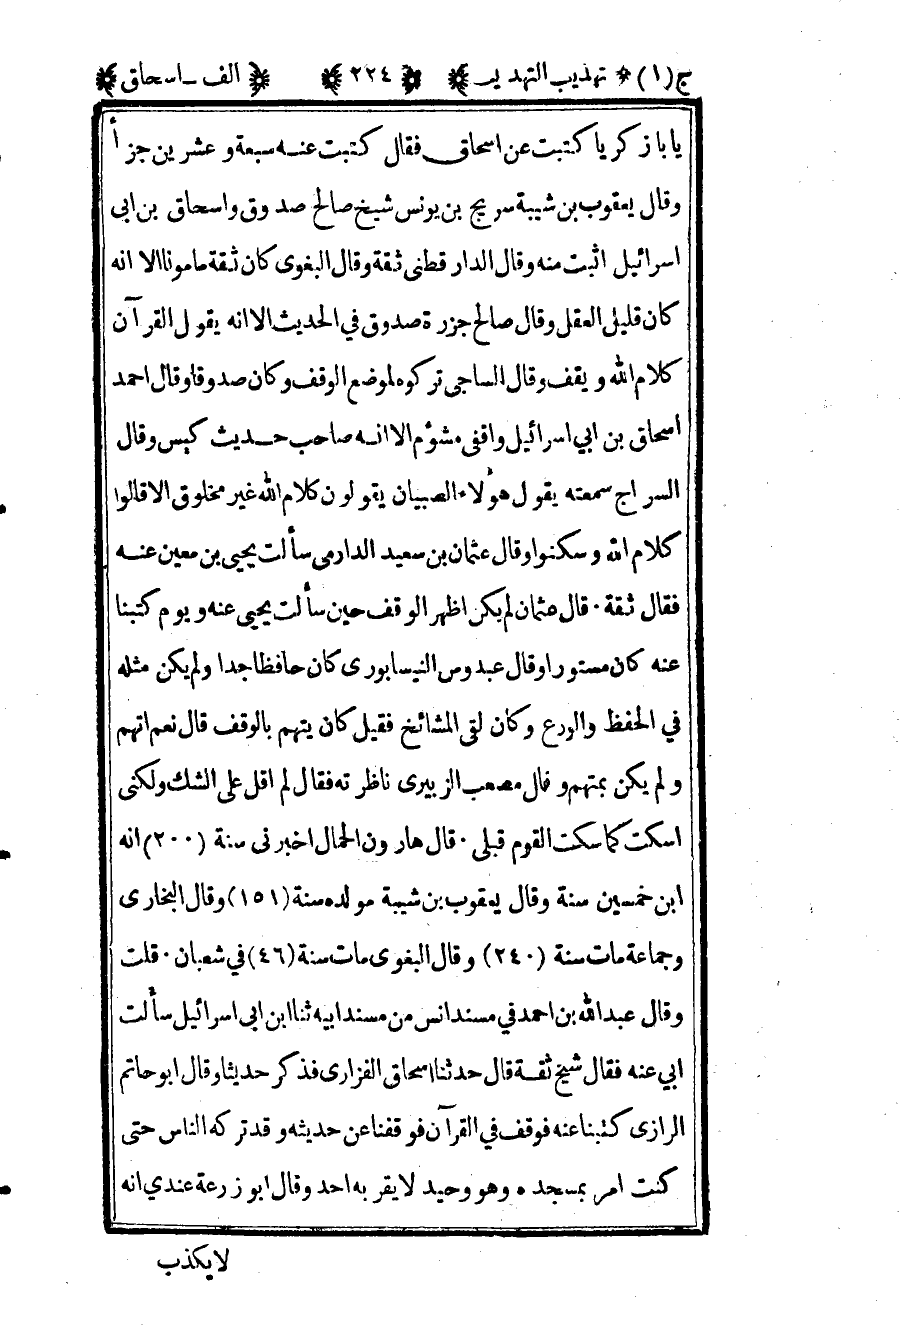 ج(١) تهذيب التهذيب ٢٢٤ الف-اسحاق
يابا زكريا كتبت عن اسحاق فقال كتبت عنه سبعة وعشرين جزأ
وقال يعقوب بن شيبة سريج بن يونس شيخ صالح صدوق واسحاق بن ابى
اسرائيل اثبت منه وقال الدار قطنى ثقة وقال البغوى كان ثقة مامونا الا انه
كان قليل العقل وقال صالح جزرة صدوق في الحديث الا انه يقول القرآن
كلام الله ويقف وقال الساجى تركوه لموضع الوقف وكان صدوقا وقال احمد
اسحاق بن ابي اسرائيل واقفى مشؤم الا انه صاحب حديث كيس وقال
السراج سمعته يقول هؤلاء الصبيان يقولون كلام الله غير مخلوق الا قالوا
كلام الله وسكتوا وقال عثمان بن سعيد الدارمى سألت يحيى بن معين عنه
فقال ثقة · قال عثمان لم يكن اظهر الوقف حين سألت يحيى عنه ويوم كتبنا
عنه كان مستورا وقال عبدوس النيسابورى كان حافظا جدا ولم يكن مثله
في الحفظ والورع وكان لقى المشائخ فقيل كان يتهم بالوقف قال نعم اتهم
ولم يكن بمتهم وقال مصعب الزبيرى ناظرته فقال لم اقل على الشك ولكنى
اسكت كما سكت القوم قبلى · قال هارون الحمال اخبرنى سنة (٢٠٠) انه
ابن خمسين سنة وقال يعقوب بن شيبة مولده سنة (١٥١) وقال البخارى
وجماعة مات سنة (٢٤٠) وقال البغوى مات سنة (٤٦) في شعبان · قلت
وقال عبدالله بن احمد في مسند انس من مسند ابيه ثنا ابن ابى اسرائيل سألت
ابي عنه فقال شيخ ثقة قال حدثنا اسحاق الفزارى فذكر حديثا وقال ابو حاتم
الرازى كتبنا عنه فوقف في القرآن فوقفنا عن حديثه وقد تركه الناس حتى
كنت امر بمسجده وهو وحيد لا يقر به احد وقال ابو زرعة عندي انه
لا يكذب